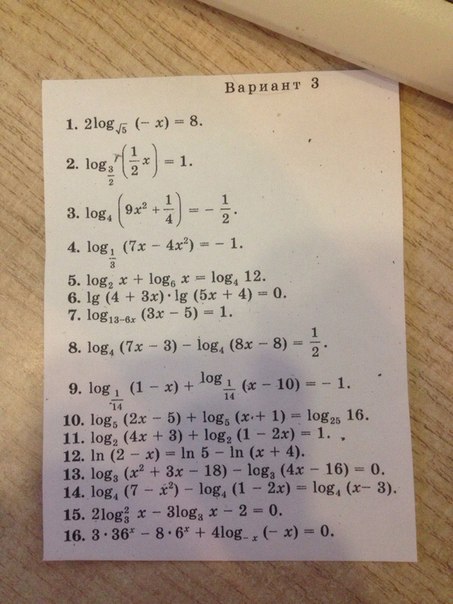 Вариант 3
1. 2log_{√5} (− x) = 8.
2. log_{3/2} (1/2 x) = 1.
3. log_4 (9x² + 1/4) = − 1/2.
4. log_{1/3} (7x − 4x²) = − 1.
5. log_2 x + log_6 x = log_4 12.
6. lg (4 + 3x) · lg (5x + 4) = 0.
7. log_{13−6x} (3x − 5) = 1.
8. log_4 (7x − 3) − log_4 (8x − 8) = 1/2.
9. log_{1/14} (1 − x) + log_{1/14} (x − 10) = − 1.
10. log_5 (2x − 5) + log_5 (x + 1) = log_{25} 16.
11. log_2 (4x + 3) + log_2 (1 − 2x) = 1.
12. ln (2 − x) = ln 5 − ln (x + 4).
13. log_3 (x² + 3x − 18) − log_3 (4x − 16) = 0.
14. log_4 (7 − x²) − log_4 (1 − 2x) = log_4 (x − 3).
15. 2log_3² x − 3log_3 x − 2 = 0.
16. 3 · 36^x − 8 · 6^x + 4log_{−x} (− x) = 0.